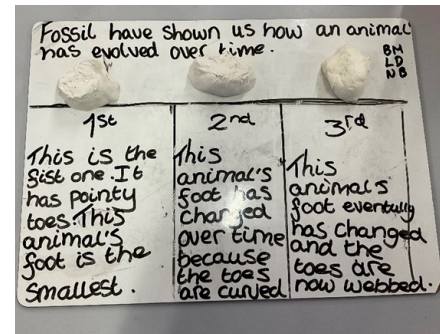 Fossil have shown us how an animal
has evolved over time.
BM
LD
NB
1st
This is the
fist one. It
has pointy
toes. This
animal's
foot is the
smallest.
2nd
This
animal's
foot has
changed
over time
because
the toes
are curved
3rd
This
animal's
foot eventully
has changed
and the
toes are
now webbed.